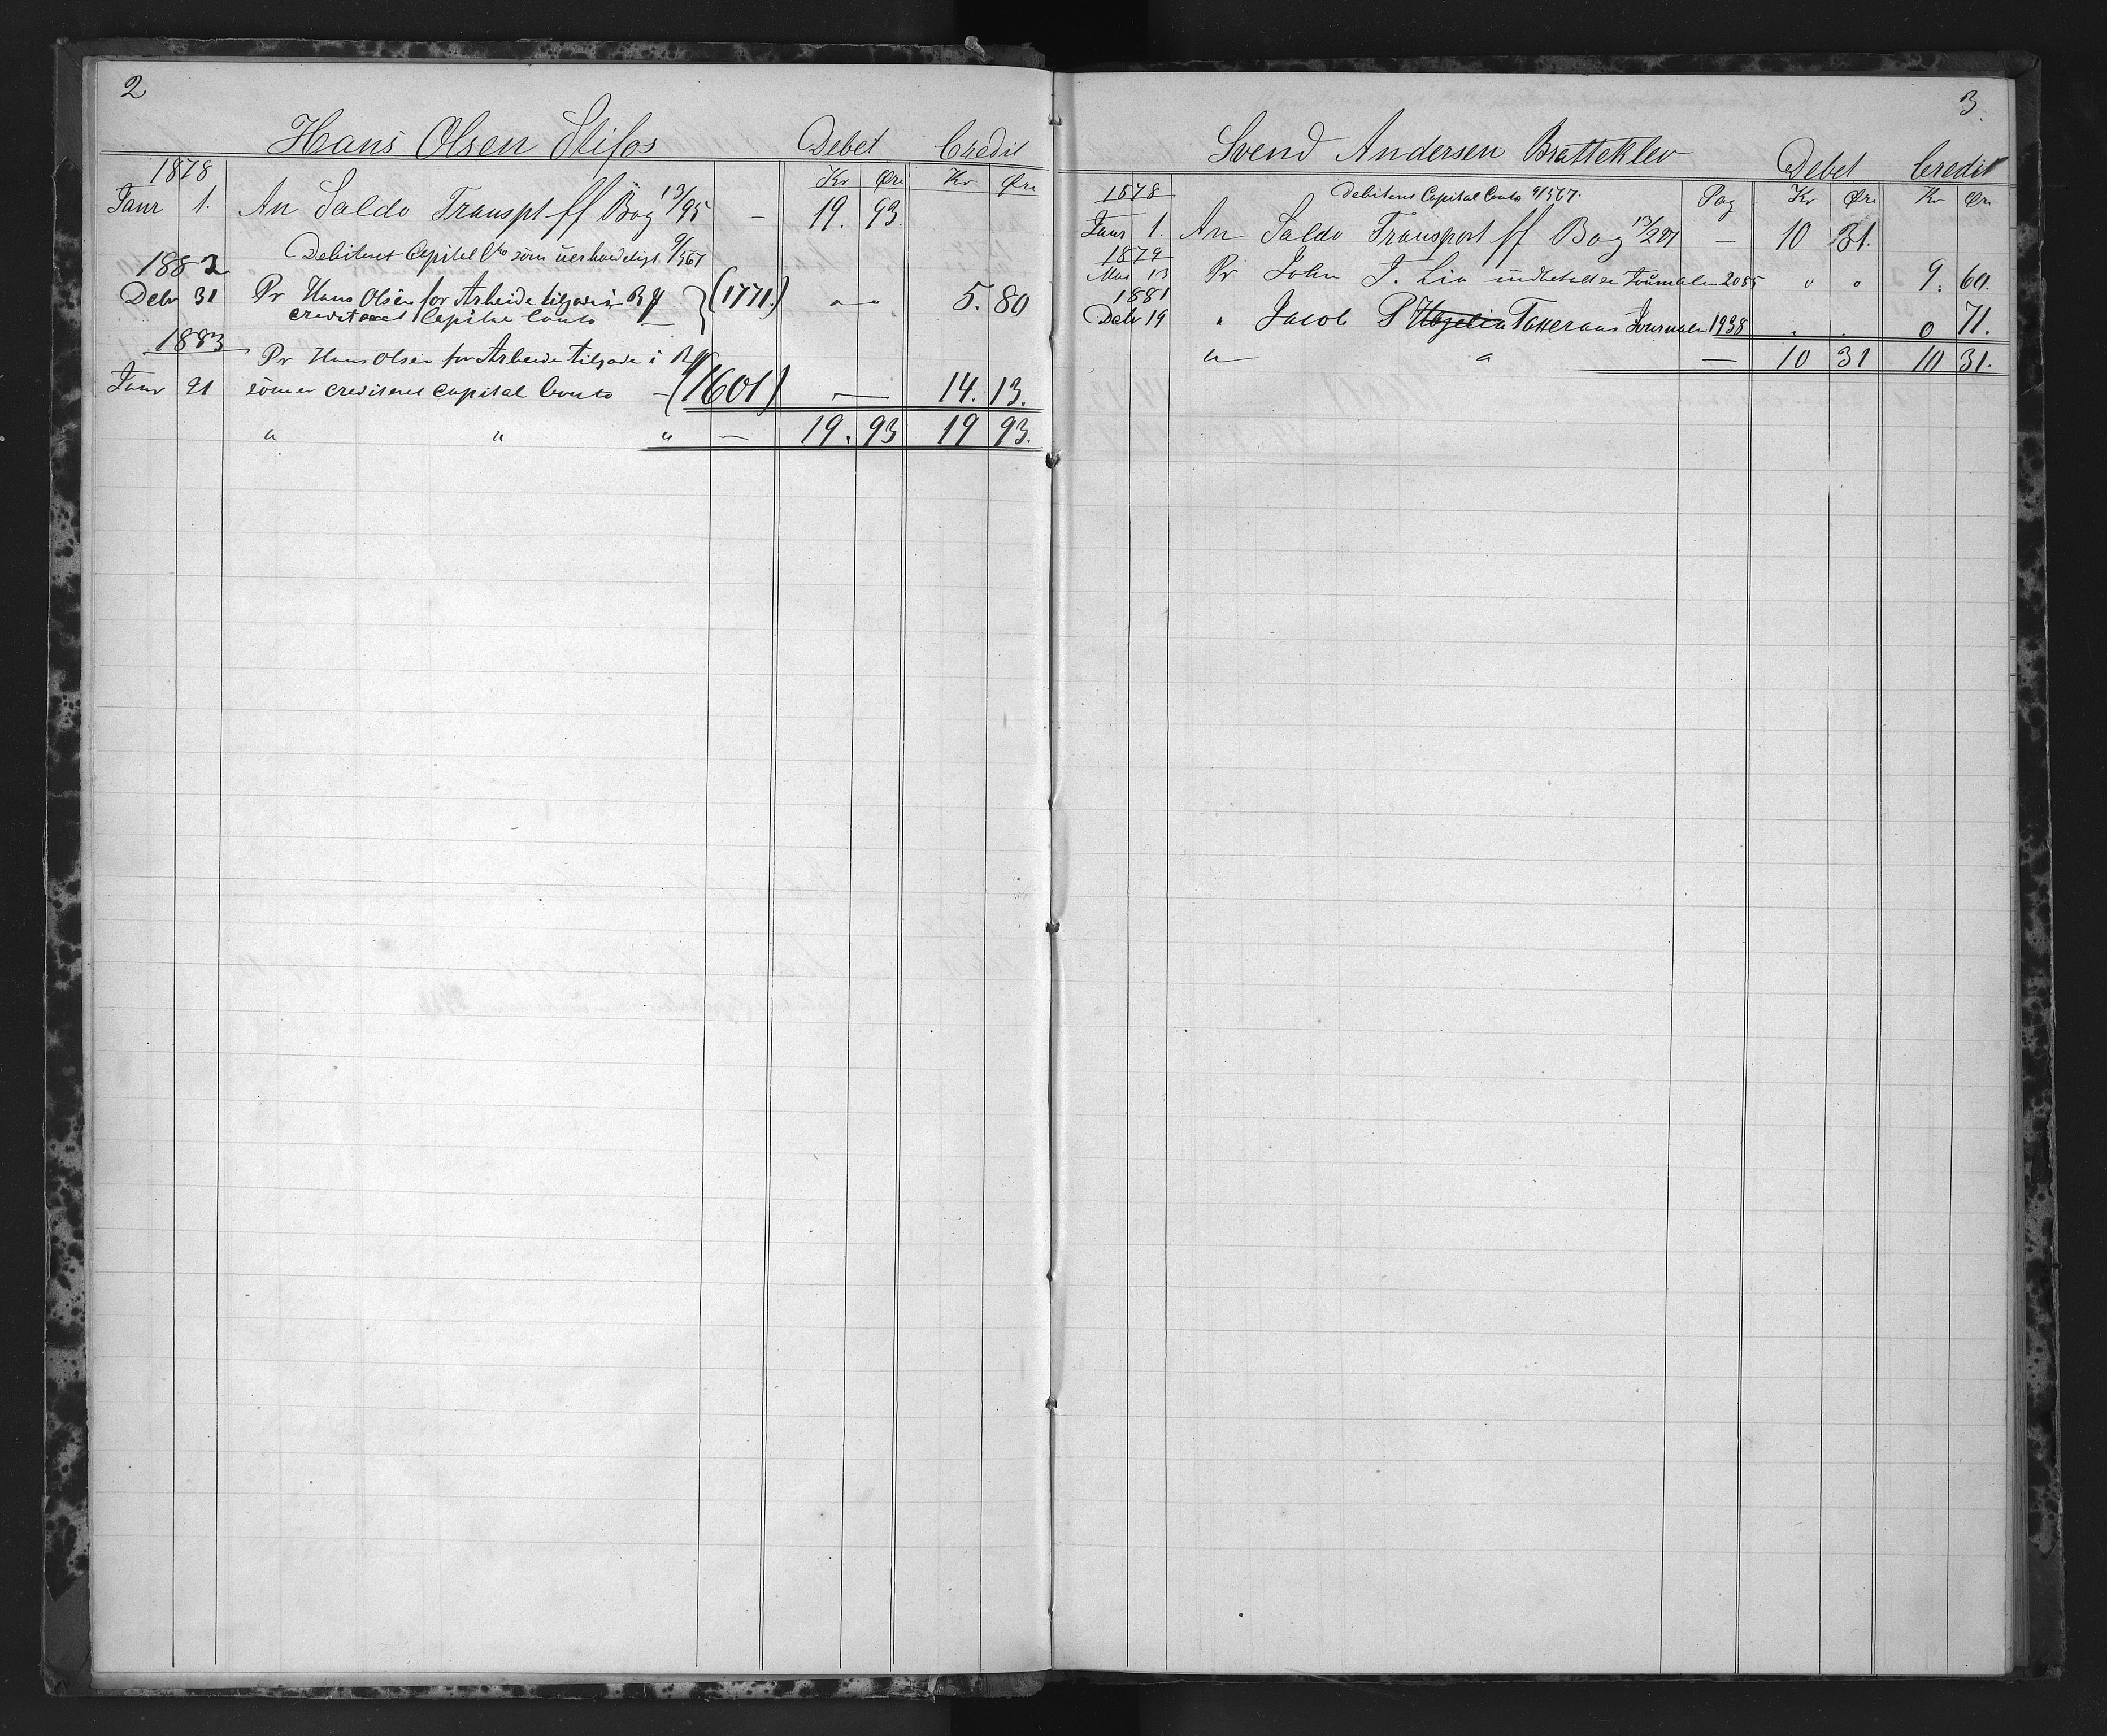 2
Hans Olsen Slifos Debet Credit
1878 Kr Øre Kr Øre
Janr 1. An Saldo Transpt ff Bog 13/95 — 19. 93.
Debiteret Capital Cto som uerholdeligt 9/567
1882
Debr 31 Pr Hans Olsen for Arbeide tilgode i Bg (1771.) " " 5. 80
crediteret Capital Conto —
1883
Pr Hans Olsen for Arbeide tilgode i Bg
Janr 21 som er crediteret Capital Conto — (1601) — 14. 13.
" " " — 19. 93 19 93.
3.
Svend Andersen Bratteklev Debet Credit
1878 Debiteret Capital Conto 9/567. Pag Kr Øre Kr Øre
Janr 1. An Saldo Transport ff Bog 13/221 — 10 31.
1879
Mar 13 Pr John J. Lia indbetalt se Journalen 2085 " " 9. 60.
1881
Debr 19 " Jacob P Taxeraas Journalen 1938 " " 0 71.
" " — 10 31 10 31.